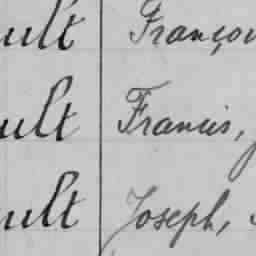 ult Françoi
ult Francis,
ult Joseph,